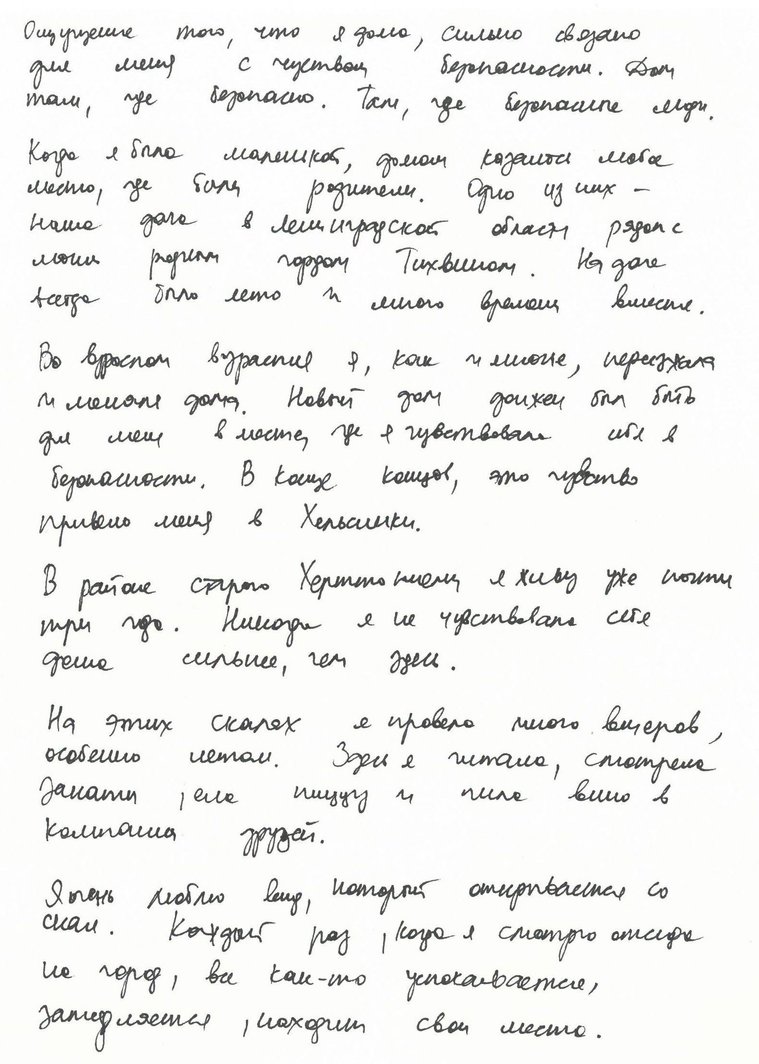 Ощущение того, что я дома, сильно связано
для меня с чувством безопасности. Дом
там, где безопасно. Там, где безопасные люди.
Когда я была маленькой, домом казалось любое
место, где были родители. Одно из них –
наша дача в Ленинградской области рядом с
моим родным городом Тихвином. На даче
всегда было лето и много времени вместе.
Во взрослом возрасте я, как и многие, переезжала
и меняла дома. Новый дом должен был быть
для меня в месте, где я чувствовала себя в
безопасности. В конце концов, это чувство
привело меня в Хельсинки.
В районе старого Херттониеми я живу уже почти
три года. Никогда я не чувствовала себя
дома сильнее, чем здесь.
На этих скалах я провела много вечеров,
особенно летом. Здесь я читала, смотрела
закаты, ела пиццу и пила вино в
компании друзей.
Я очень люблю вид, который открывается со
скал. Каждый раз, когда я смотрю отсюда
на город, все как-то успокаивается,
замедляется, находит свои место.